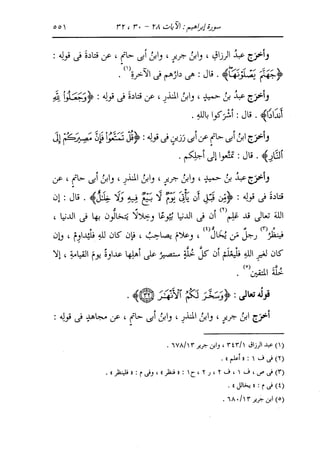 سورة إبراهيم : الآيات ٢٨ - ٣٠ ، ٣٢
٥٥١
وأخرَج عبدُ الرزاقِ ، وابنُ جريرٍ ، وابنُ أبى حاتمٍ ، عن قتادةَ فى قولِه :
﴿جَهَنَّمَ يَصْلَوْنَهَا﴾ . قال : هى دارُهم فى الآخرةِ(١) .
وأخرَج عبدُ بنُ حميدٍ ، وابنُ المنذرِ ، عن قتادةَ فى قولِه : ﴿وَجَعَلُوا۟ لِلَّهِ
أَندَادًا﴾ . قال : أشرَكوا باللهِ .
وأخرَج ابنُ أبى حاتمٍ عن أبى رَزينٍ فى قولِه : ﴿قُلْ تَمَتَّعُوا۟ فَإِنَّ مَصِيرَكُمْ إِلَى
ٱلنَّارِ﴾ . قال : تمتَّعوا إلى أجلِكم .
وأخرَج عبدُ بنُ حميدٍ ، وابنُ جريرٍ ، وابنُ المنذرِ ، وابنُ أبى حاتمٍ ، عن
قتادةَ فى قولِه : ﴿مِّن قَبْلِ أَن يَأْتِىَ يَوْمٌ لَّا بَيْعٌ فِيهِ وَلَا خِلَٰلٌ﴾ . قال : إن
اللهَ تعالى قد عَلِم(٢) أن فى الدنيا بُيوعًا وخِلالًا يَتخالُّون بها فى الدنيا ،
فينظُرُ(٣) رجلٌ مَن يُخالُّ(٤) وعلامَ يصاحِبُ ، فإن كان للهِ فلْيُداوِمْ ، وإن
كان لغيرِ اللهِ فليَعْلَمْ أن كلَّ خُلَّةٍ ستصيرُ على أهلِها عداوةً يومَ القيامةِ ، إلا
خُلَّةَ المتقين(٥) .
قولُه تعالى : ﴿وَسَخَّرَ لَكُمُ ٱلْأَنْهَٰرَ ﴿٣٢﴾﴾ .
أخرَج ابنُ جريرٍ ، وابنُ المنذرِ ، وابنُ أبى حاتمٍ ، عن مجاهدٍ فى قولِه :
(١) عبد الرزاق ٣٤٣/١ ، وابن جرير ٦٧٨/١٣ .
(٢) فى ف ١ : « أعلم » .
(٣) فى ص ، ف ١ ، ف ٢ ، ر ٢ ، ح ١ : « فنظر » ، وفى م : « فلينظر » .
(٤) فى م : « يخالل » .
(٥) ابن جرير ٦٨٠/١٣ .